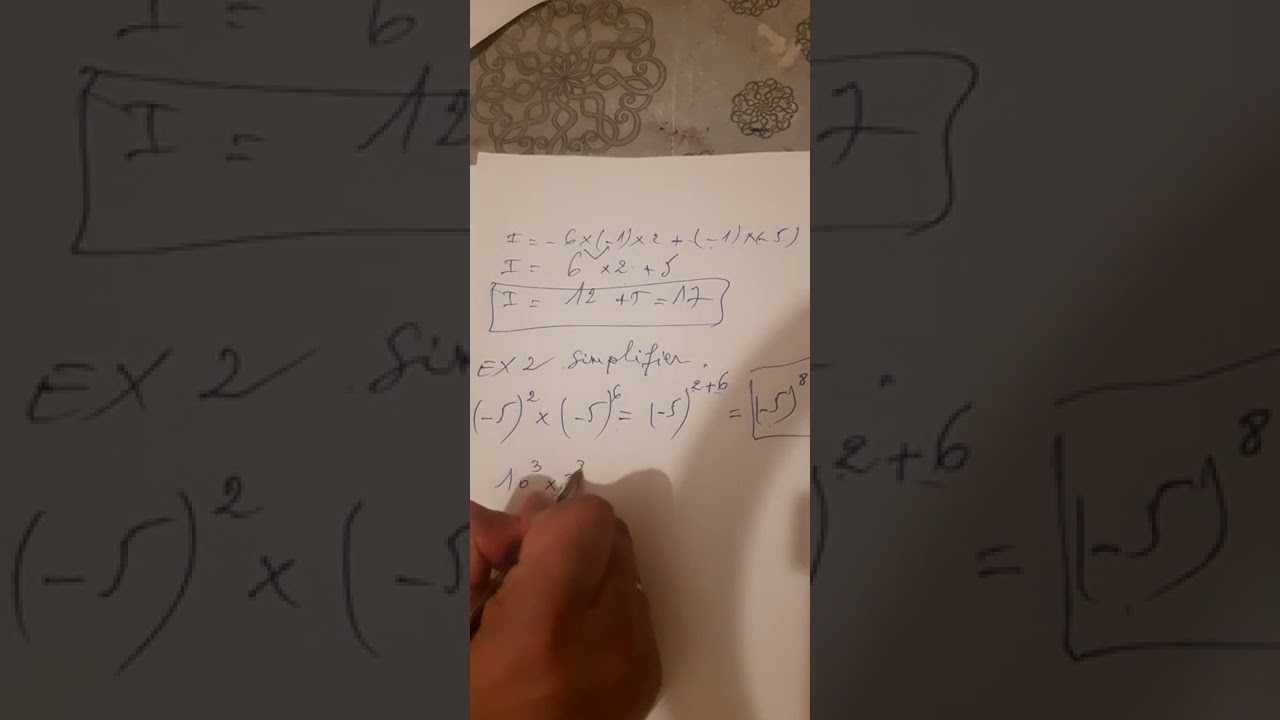 I = -6×(-1)×2 + (-1)×(-5)
I = 6 ×2 + 5
I = 12 +5 = 17
EX 2 simplifier.
(-5)² × (-5)⁶ = (-5)²⁺⁶ = (-5)⁸
10³ ×